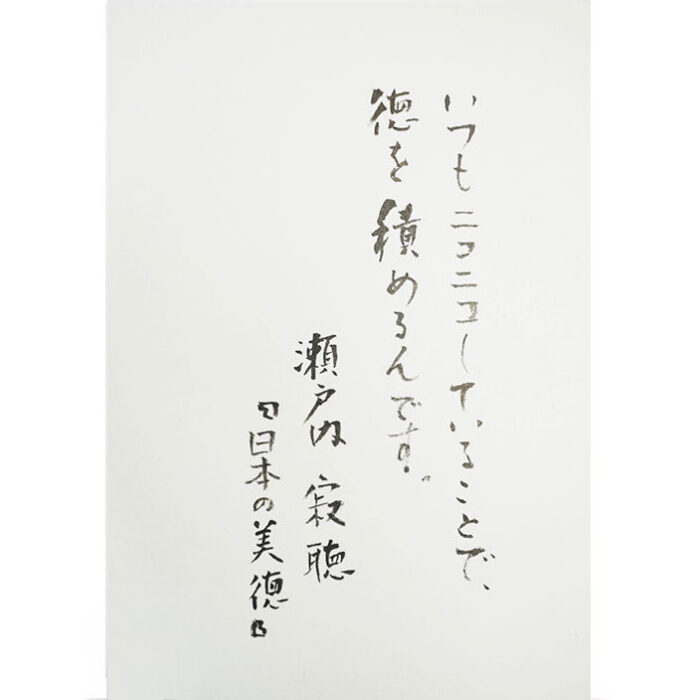 いつもニコニコしていることで、
徳を積めるんです。
瀬戸内 寂聴
『日本の美徳』